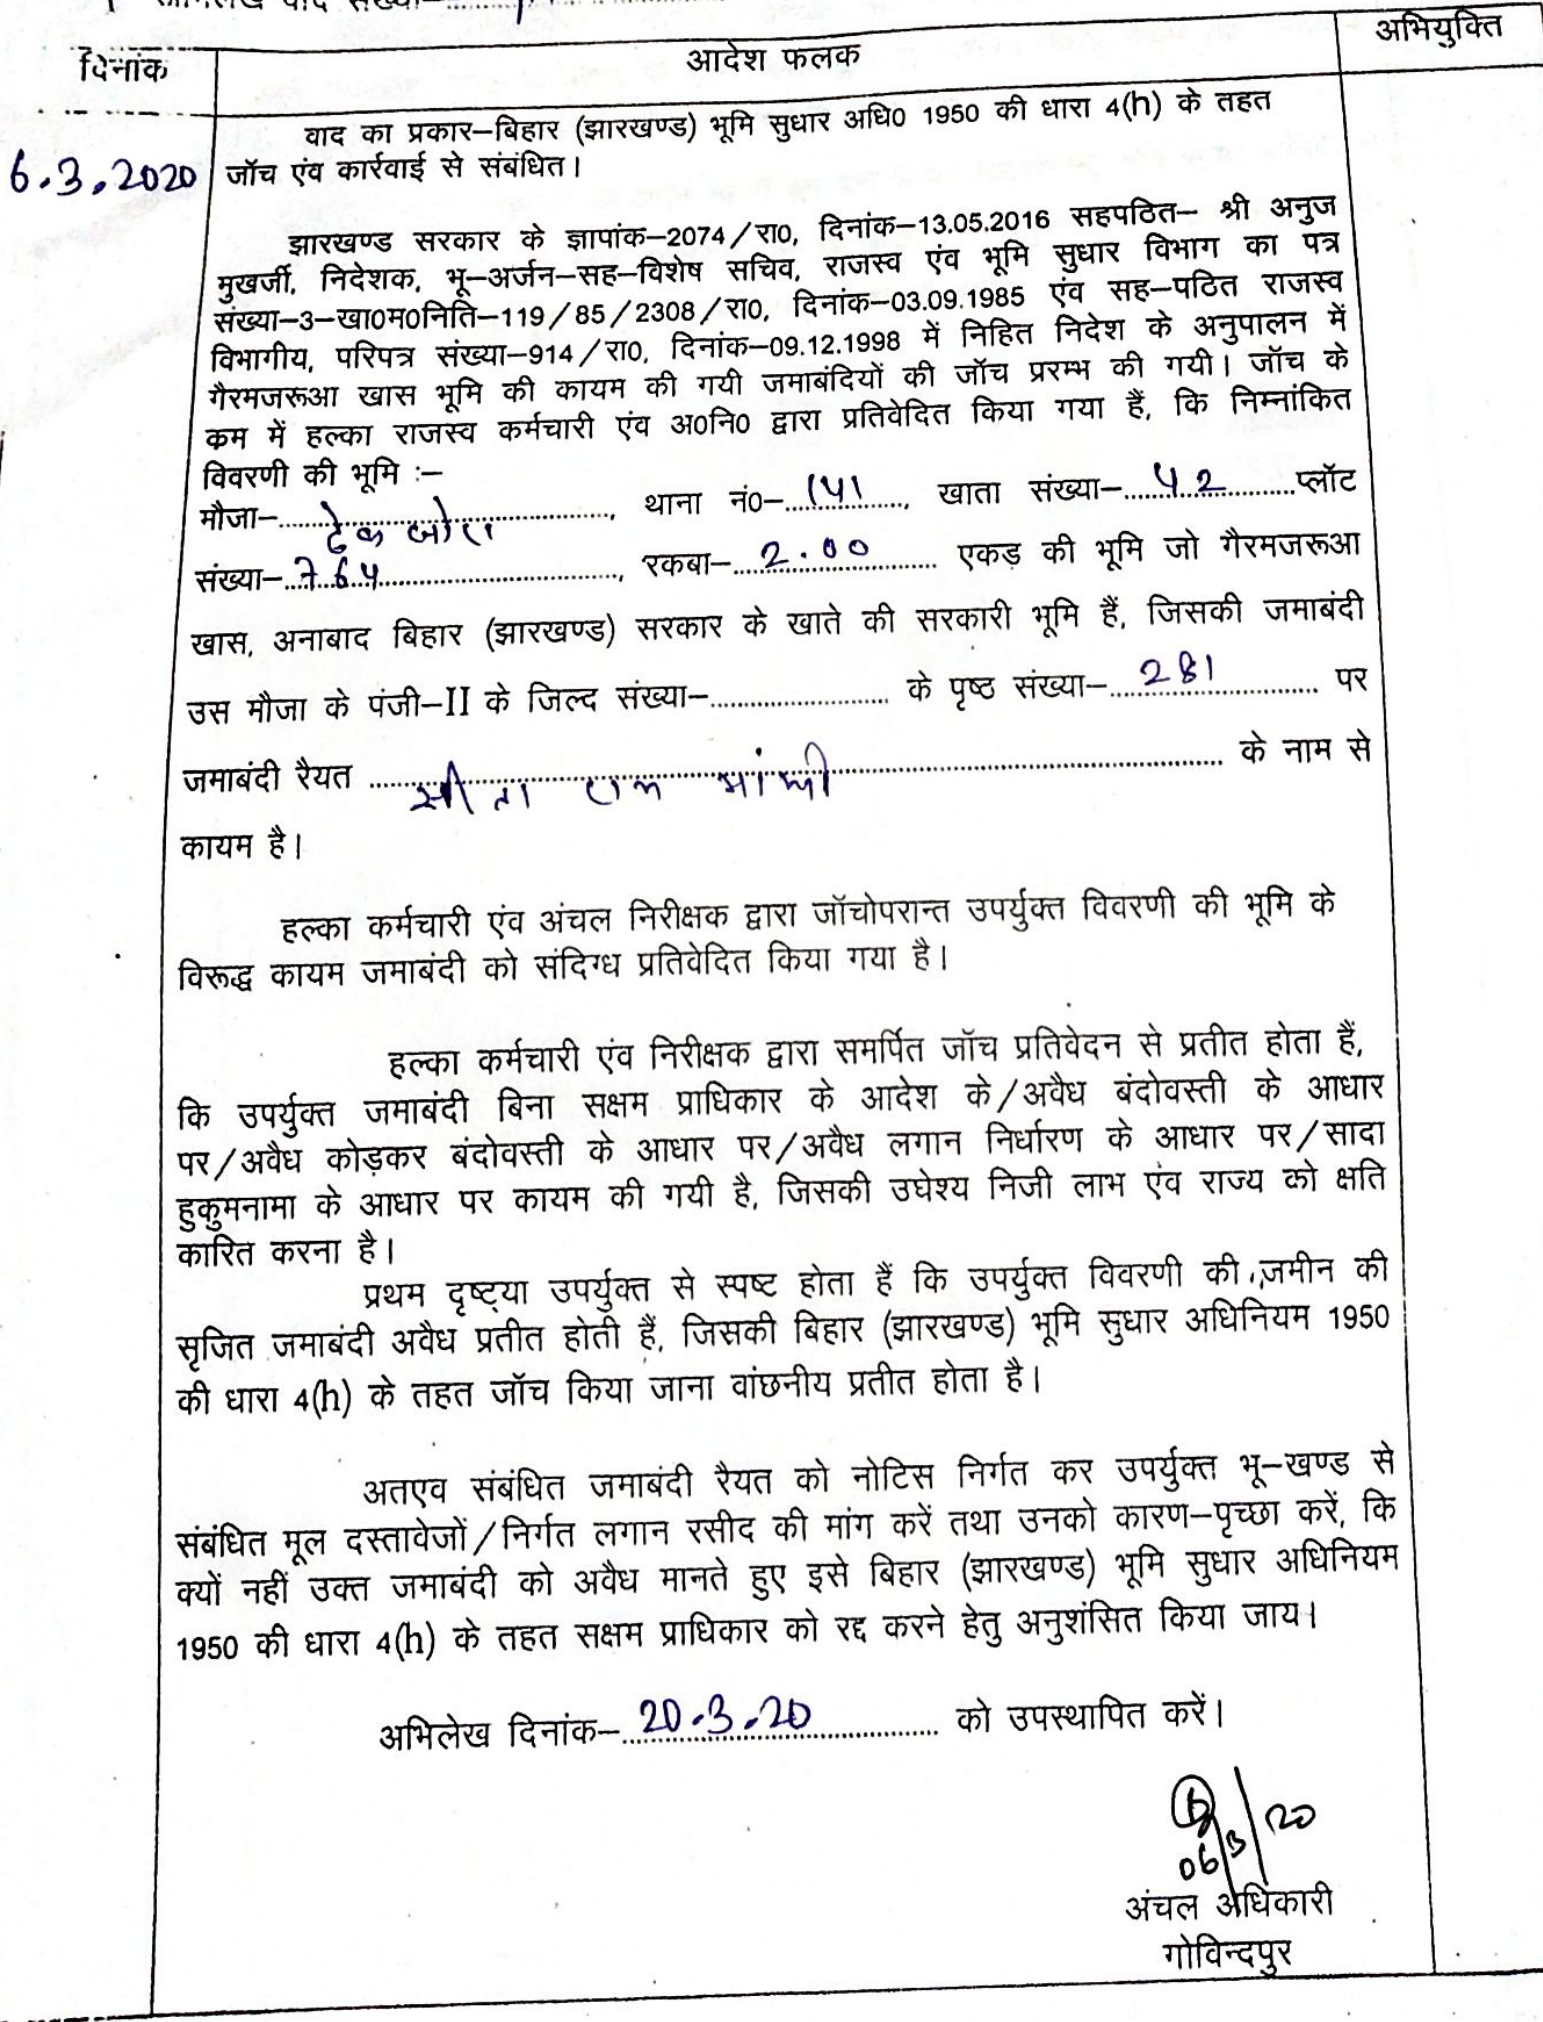 दिनांक आदेश फलक अभियुक्ति
वाद का प्रकार–बिहार (झारखण्ड) भूमि सुधार अधि0 1950 की धारा 4(h) के तहत
6.3.2020 जॉच एंव कार्रवाई से संबंधित।
झारखण्ड सरकार के ज्ञापांक–2074/रा0, दिनांक–13.05.2016 सहपठित– श्री अनुज
मुखर्जी, निदेशक, भू–अर्जन–सह–विशेष सचिव, राजस्व एंव भूमि सुधार विभाग का पत्र
संख्या–3–खा0म0निति–119/85/2308/रा0, दिनांक–03.09.1985 एंव सह–पठित राजस्व
विभागीय, परिपत्र संख्या–914/रा0, दिनांक–09.12.1998 में निहित निदेश के अनुपालन में
गैरमजरूआ खास भूमि की कायम की गयी जमाबंदियों की जॉच प्ररम्भ की गयी। जॉच के
कम में हल्का राजस्व कर्मचारी एंव अ0नि0 द्वारा प्रतिवेदित किया गया हैं, कि निम्नांकित
विवरणी की भूमि :–
मौजा–..............., थाना नं0–141, खाता संख्या–42 प्लॉट
संख्या–764, रकबा–2.00 एकड़ की भूमि जो गैरमजरूआ
खास, अनाबाद बिहार (झारखण्ड) सरकार के खाते की सरकारी भूमि हैं, जिसकी जमाबंदी
उस मौजा के पंजी–II के जिल्द संख्या–............... के पृष्ठ संख्या–281 पर
जमाबंदी रैयत सीता राम मांझी के नाम से
कायम है।
हल्का कर्मचारी एंव अंचल निरीक्षक द्वारा जॉचोपरान्त उपर्युक्त विवरणी की भूमि के
विरूद्ध कायम जमाबंदी को संदिग्ध प्रतिवेदित किया गया है।
हल्का कर्मचारी एंव निरीक्षक द्वारा समर्पित जॉच प्रतिवेदन से प्रतीत होता हैं,
कि उपर्युक्त जमाबंदी बिना सक्षम प्राधिकार के आदेश के/अवैध बंदोवस्ती के आधार
पर/अवैध कोड़कर बंदोवस्ती के आधार पर/अवैध लगान निर्धारण के आधार पर/सादा
हुकुमनामा के आधार पर कायम की गयी है, जिसकी उघेश्य निजी लाभ एंव राज्य को क्षति
कारित करना है।
प्रथम दृष्ट्या उपर्युक्त से स्पष्ट होता हैं कि उपर्युक्त विवरणी की जमीन की
सृजित जमाबंदी अवैध प्रतीत होती हैं, जिसकी बिहार (झारखण्ड) भूमि सुधार अधिनियम 1950
की धारा 4(h) के तहत जॉच किया जाना वांछनीय प्रतीत होता है।
अतएव संबंधित जमाबंदी रैयत को नोटिस निर्गत कर उपर्युक्त भू–खण्ड से
संबंधित मूल दस्तावेजों/निर्गत लगान रसीद की मांग करें तथा उनको कारण–पृच्छा करें, कि
क्यों नहीं उक्त जमाबंदी को अवैध मानते हुए इसे बिहार (झारखण्ड) भूमि सुधार अधिनियम
1950 की धारा 4(h) के तहत सक्षम प्राधिकार को रद्द करने हेतु अनुशंसित किया जाय।
अभिलेख दिनांक–20.3.20 को उपस्थापित करें।
06/3/20
अंचल अधिकारी
गोविन्दपुर